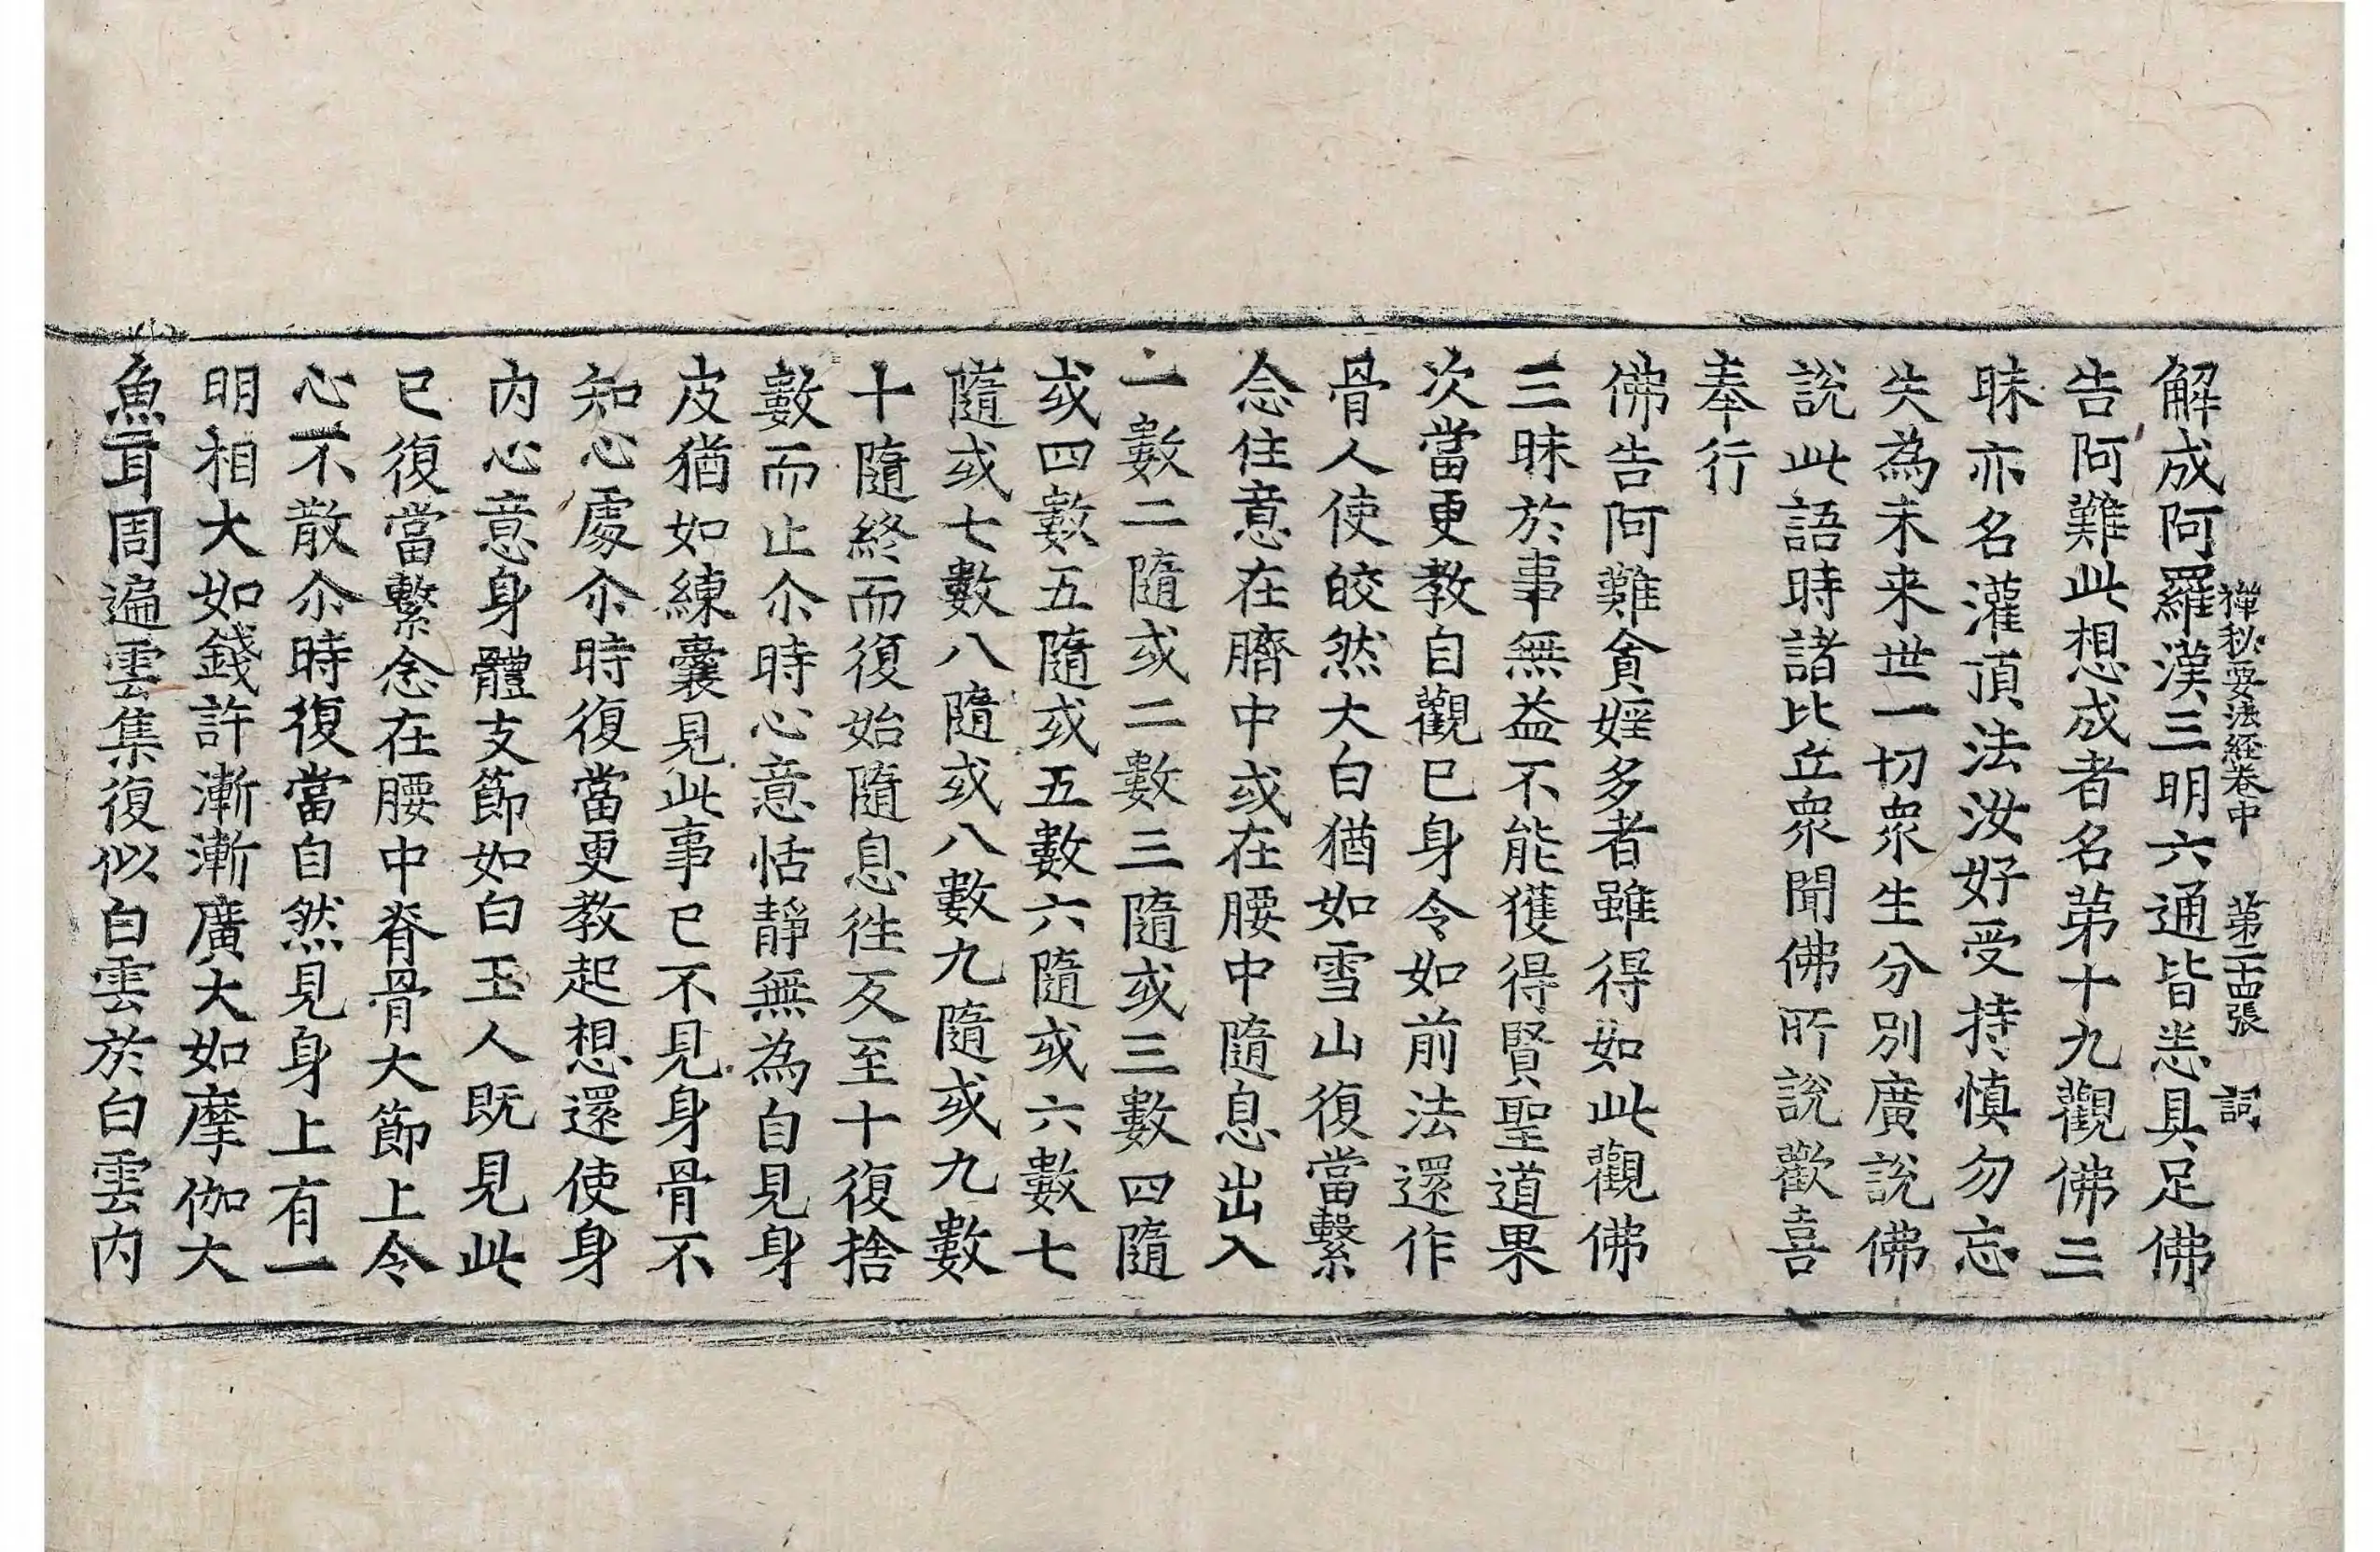 禪秘要法經卷中 第二十四張 詞
解成阿羅漢三明六通皆悉具足佛
告阿難此想成者名第十九觀佛三
昧亦名灌頂法汝好受持慎勿忘
失為未来世一切衆生分別廣說佛
說此語時諸比丘衆聞佛所說歡喜
奉行
佛告阿難貪婬多者雖得如此觀佛
三昧於事無益不能獲得賢聖道果
次當更教自觀已身令如前法還作
骨人使皎然大白猶如雪山復當繫
念住意在臍中或在腰中隨息出入
一數二隨或二數三隨或三數四隨
或四數五隨或五數六隨或六數七
隨或七數八隨或八數九隨或九數
十隨終而復始隨息徃反至十復捨
數而止尒時心意恬靜無為自見身
皮猶如練囊見此事已不見身骨不
知心處尒時復當更教起想還使身
內心意身體支節如白玉人既見此
已復當繫念在腰中脊骨大節上令
心不散尒時復當自然見身上有一
明相大如錢許漸漸廣大如摩伽大
魚耳周遍雲集復似白雲於白雲內